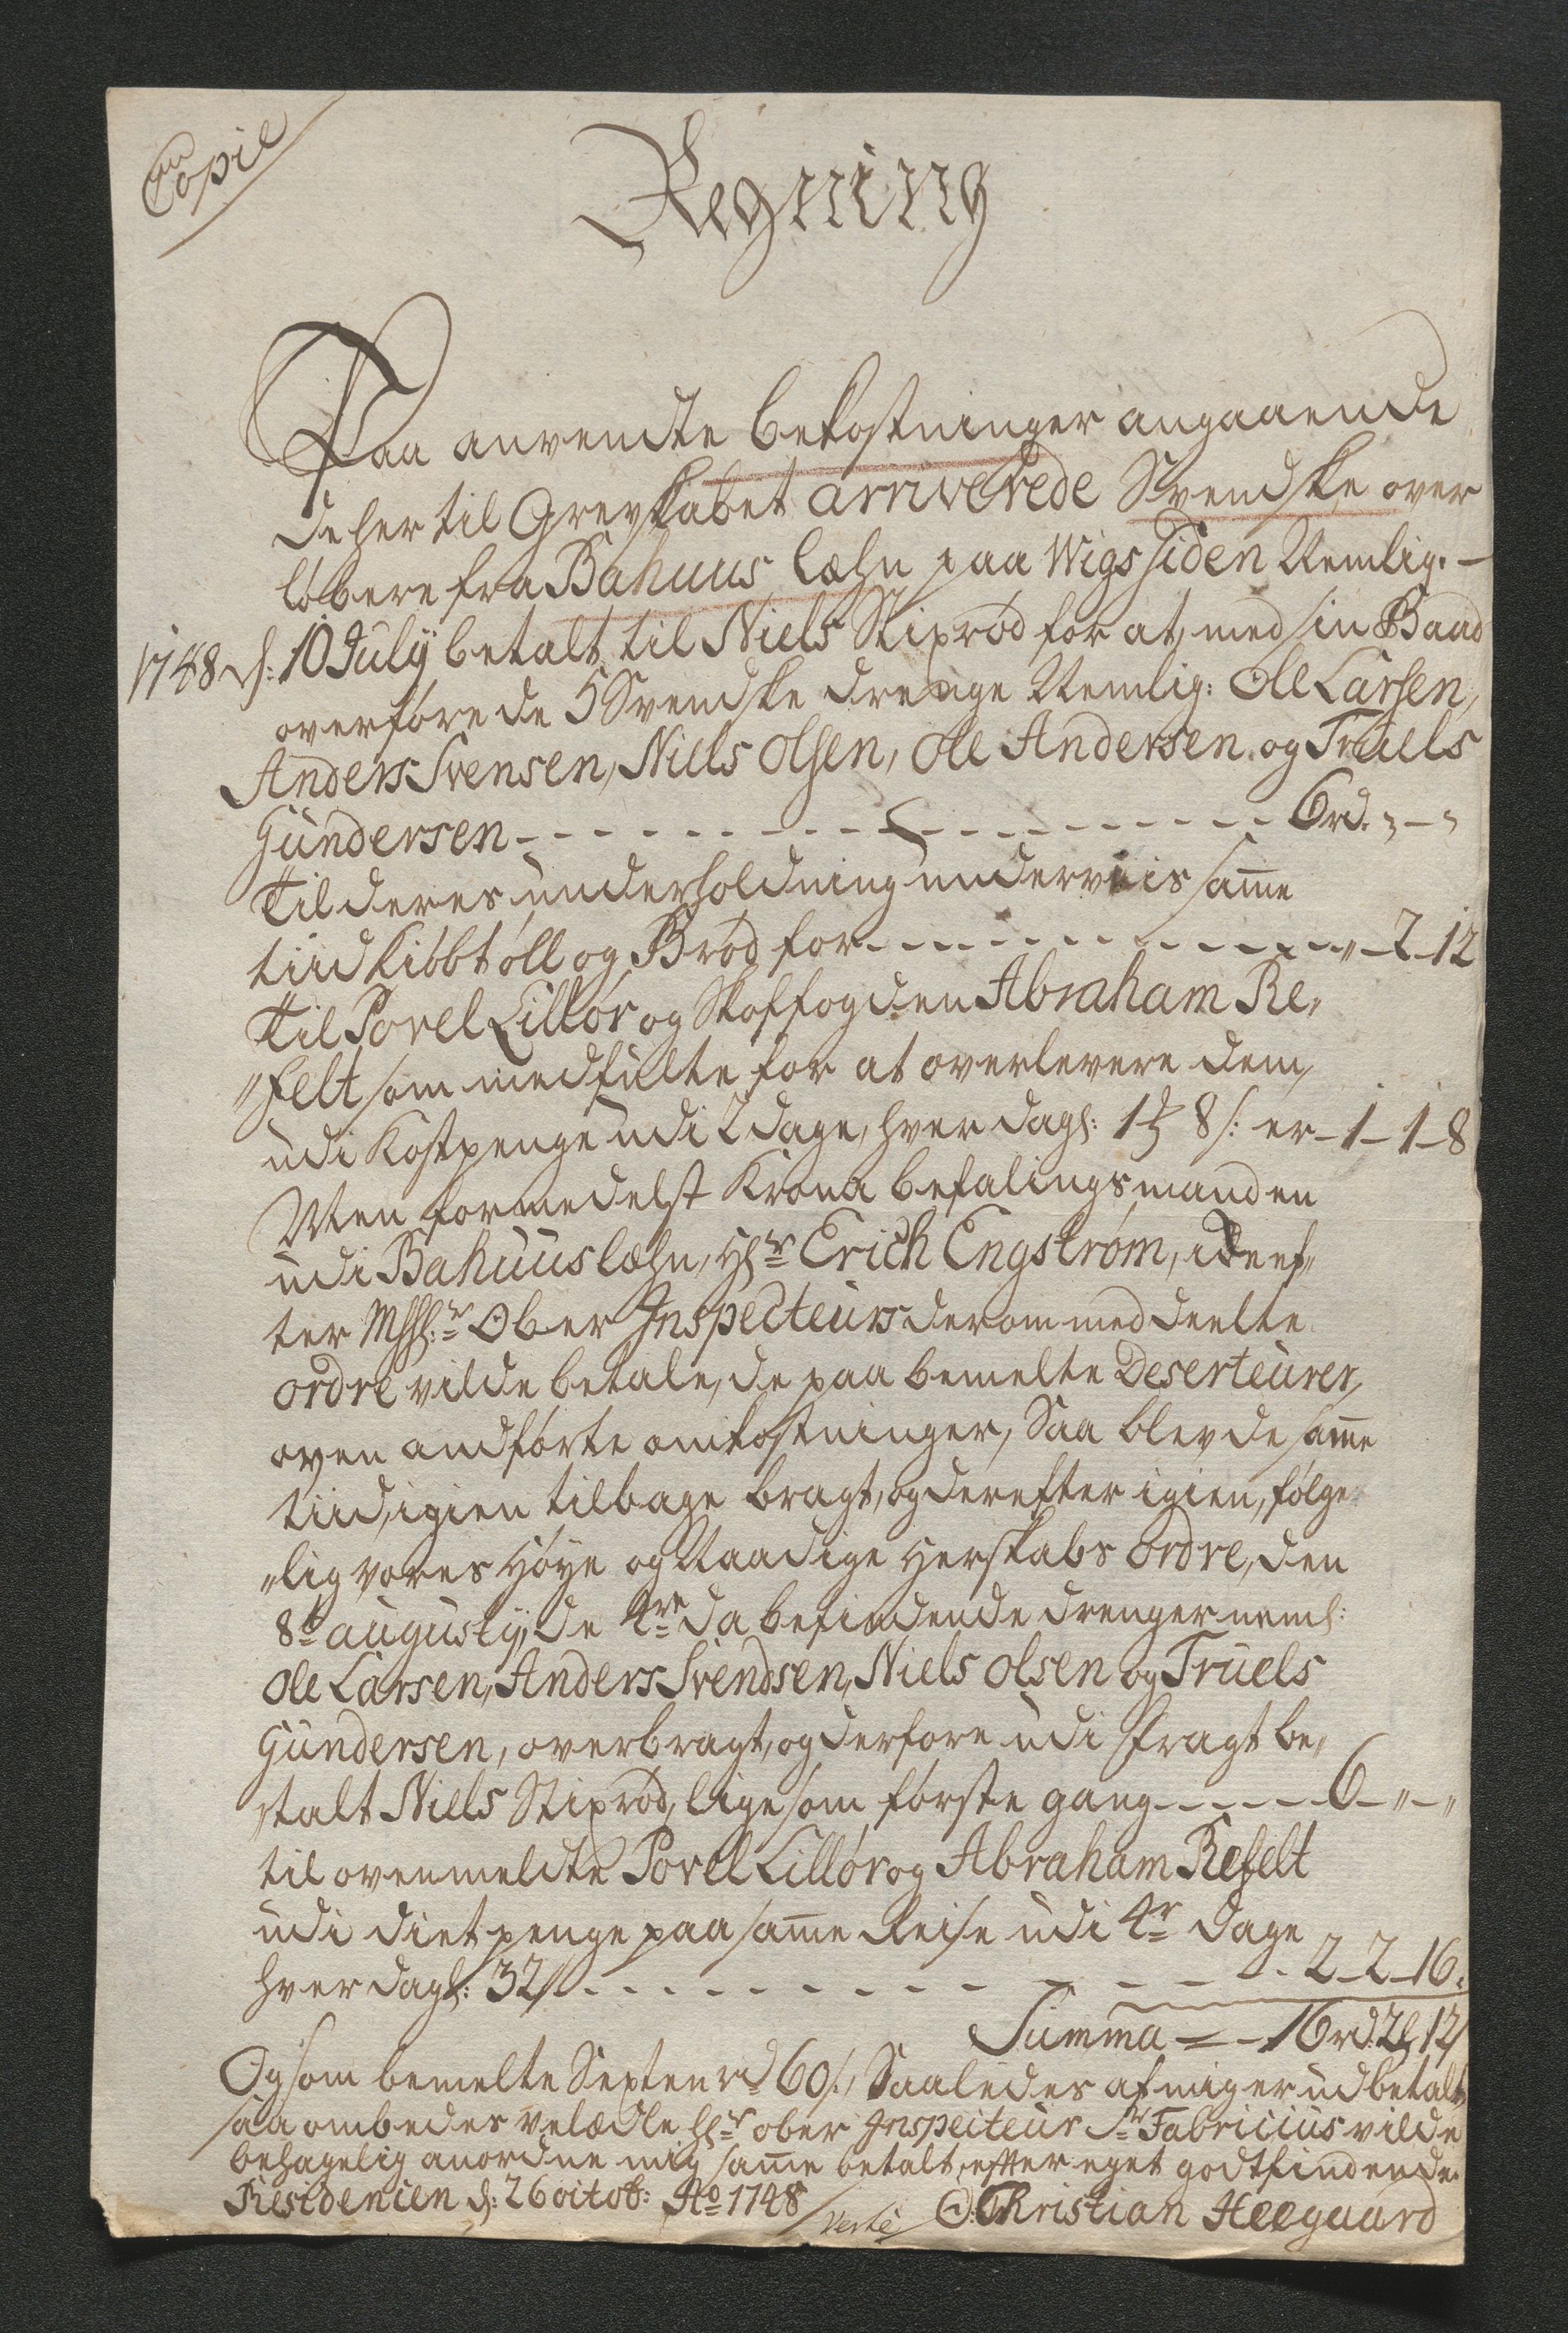 Copie
Regning
Paa anvendte bekostninger angaaende
de her til Grevskabet arriverede Svendske over
løbere fra Bahuus læhn paa Wigssiden Nemlig. –
1748 d: 10 July betalt til Niels Stixrød for at, med sin Baad
overføre de 5 Svendske drenge Nemlig: Ole Larsen,
Anders Svensen, Niels Olsen, Ole Andersen og Truels
Gundersen - - - - - - - - - - - - - 6 rd. „ – „
Til deres underholdning underveis samme
tiid kiøbt øll og Brød for - - - - - - - - - „ – 2 – 12
Til Povel Lilløer og Skoffogden Abraham Re„
„felt som medfulte for at overlevere dem,
udi Kostpenge udi 2 dage, hver dagl: 1 8 s: er – 1 – 1 – 8
Men formedelst Krono befalingsmanden
udi Bahuus læhn, Hr Erich Engstrøm, ei ef„
ter Ober Inspecteurs derom meddeelte
ordre vilde betale, de paa bemelte Deserteurer,
oven andførte omkostninger, Saa blev de samme
tiid, igien tilbage bragt, og derefter igien, følge
„lig vores Høye og Naadige Herskabs ordre, den
8de augusty, de 4re da befindende drenger neml:
Ole Larsen, Anders Svendsen, Niels Olsen og Truels
Gundersen, overbragt, og derfore udi fragt be„
„talt Niels Stixrød, lige som første gang - - - - - 6 – „ – „
til ovenmeldte Povel Lilløer og Abraham Refelt
udi diet penge paa samme Reise udi 4r dage
hver dagl: 32 s - - - - - - - - - - - 2 – 2 – 16.
Summa – – 16 rd. 2 12
Og som bemelte Sexten rd 60 s., Saaledes af mig er udbetalt,
saa ombedes velædle Hr ober Inspecteur Sr Fabricius vilde
behagelig anordne mig samme betalt, efter eget godtfindende.
Residencien d: 26 octob: Ao 1748
verte
Christian Heegaard